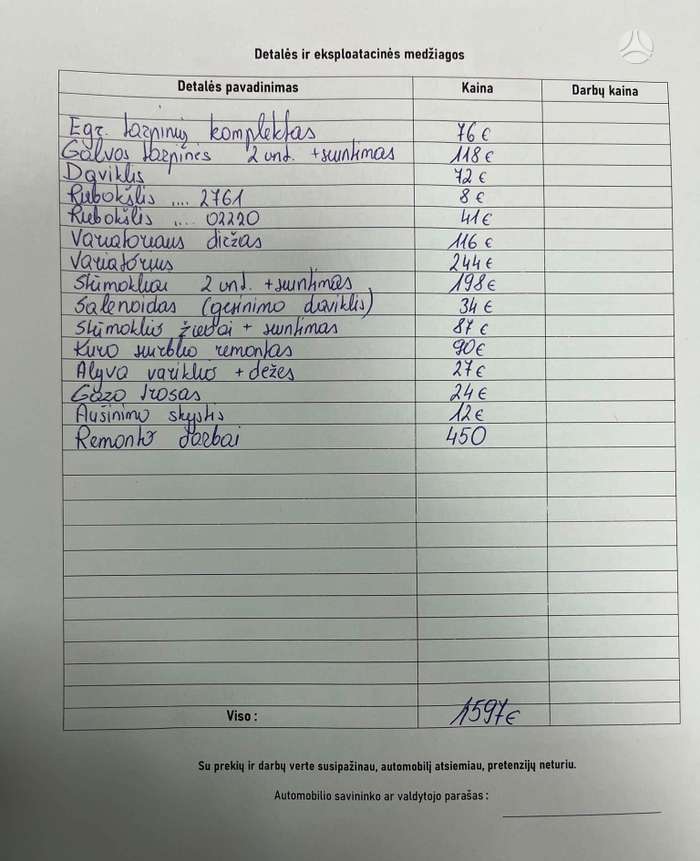 Detalės ir eksploatacinės medžiagos
Detalės pavadinimas Kaina Darbų kaina
Egr. tarpinių komplektas 76 €
Galvos tarpinės 2 vnt. + siuntimas 118 €
Daviklis 72 €
Riebokšlis .... 2761 8 €
Riebokšlis .... 02220 41 €
Variatoriaus diržas 116 €
Variatorius 244 €
Stūmokliai 2 vnt. + siuntimas 198 €
Salenoidas (gesinimo daviklis) 34 €
Stūmoklio žiedai + siuntimas 87 €
Kuro siurblio remontas 90 €
Alyva variklio + dėžės 27 €
Gazo trosas 24 €
Aušinimo skystis 12 €
Remonto darbai 450
Viso : 1597 €
Su prekių ir darbų verte susipažinau, automobilį atsiemiau, pretenzijų neturiu.
Automobilio savininko ar valdytojo parašas :